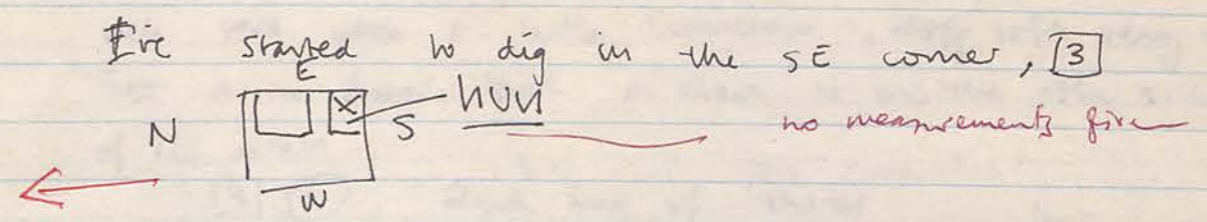 I've started to dig in the SE corner, 3
E
X
HUH
N
S
no measurements given
W